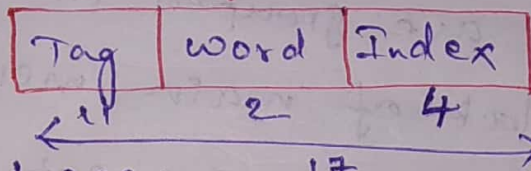 Tag word Index
11 2 4
17